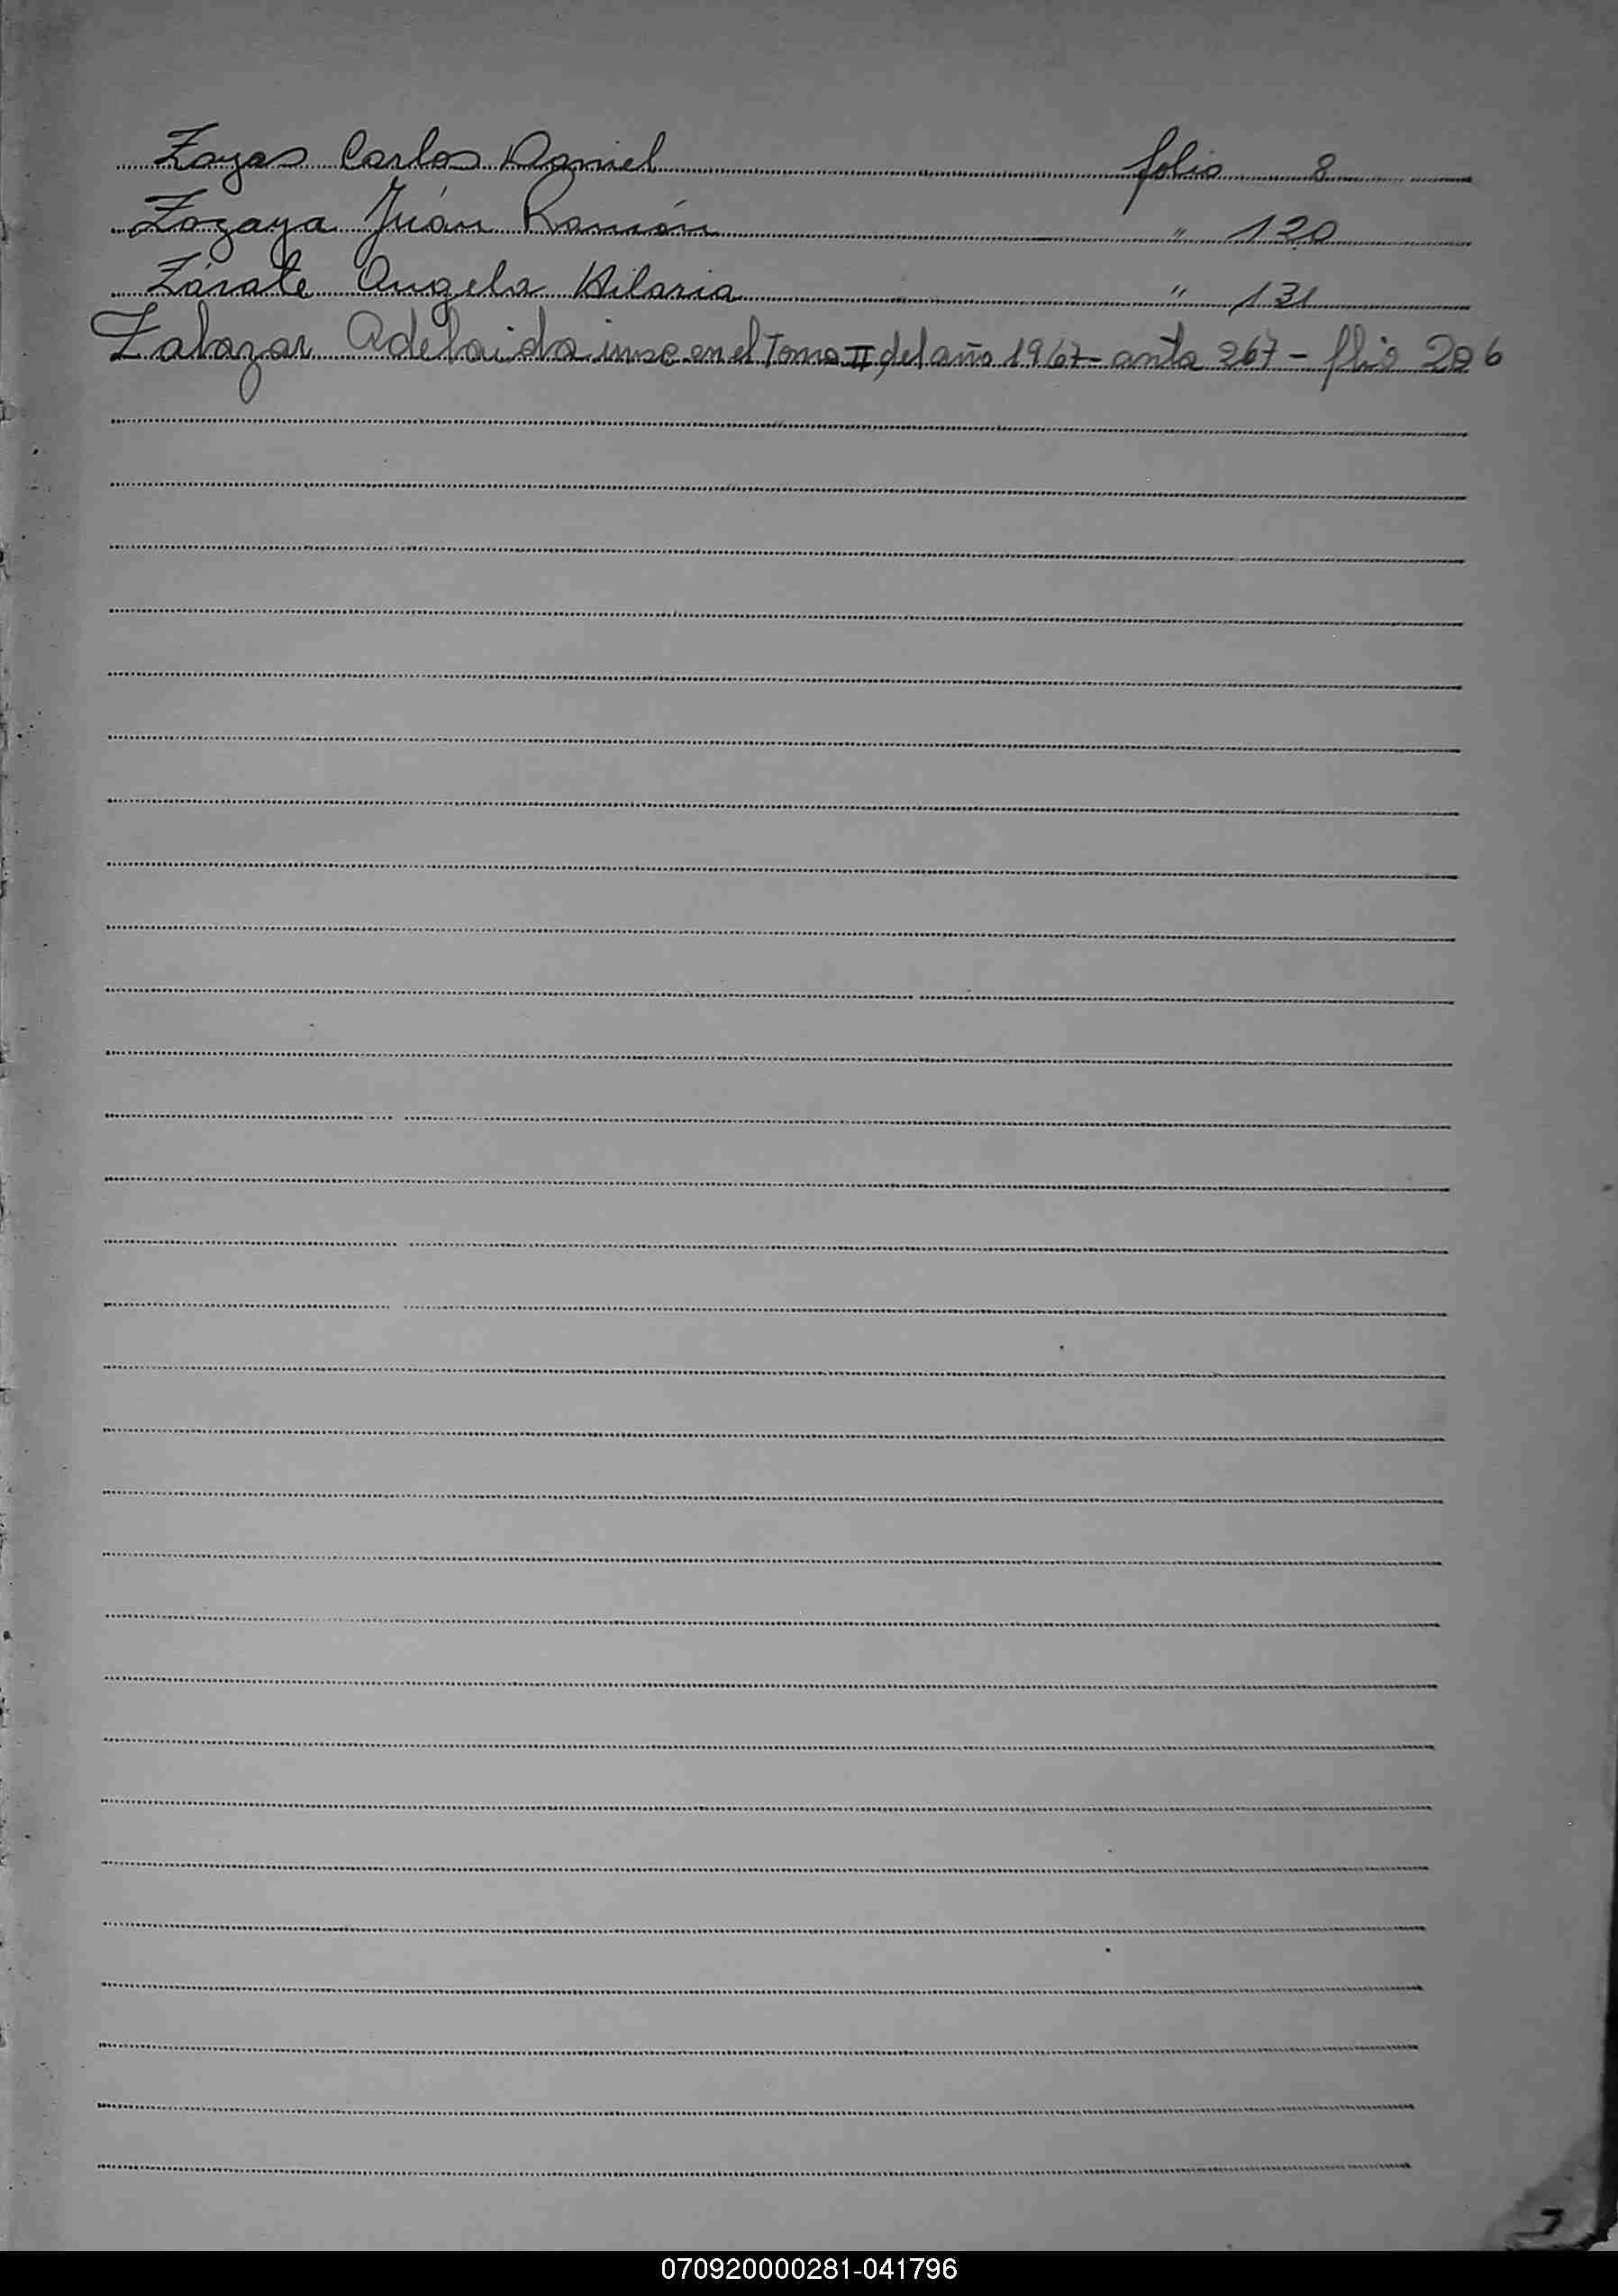 Zayas Carlos Daniel folio 8
Zozaya Juán Ramón " 120
Zárate Angela Hilaria " 131
Zalazar Adelaida insc en el Tomo II del año 1967 - acta 267 - flio 206
070920000281-041796